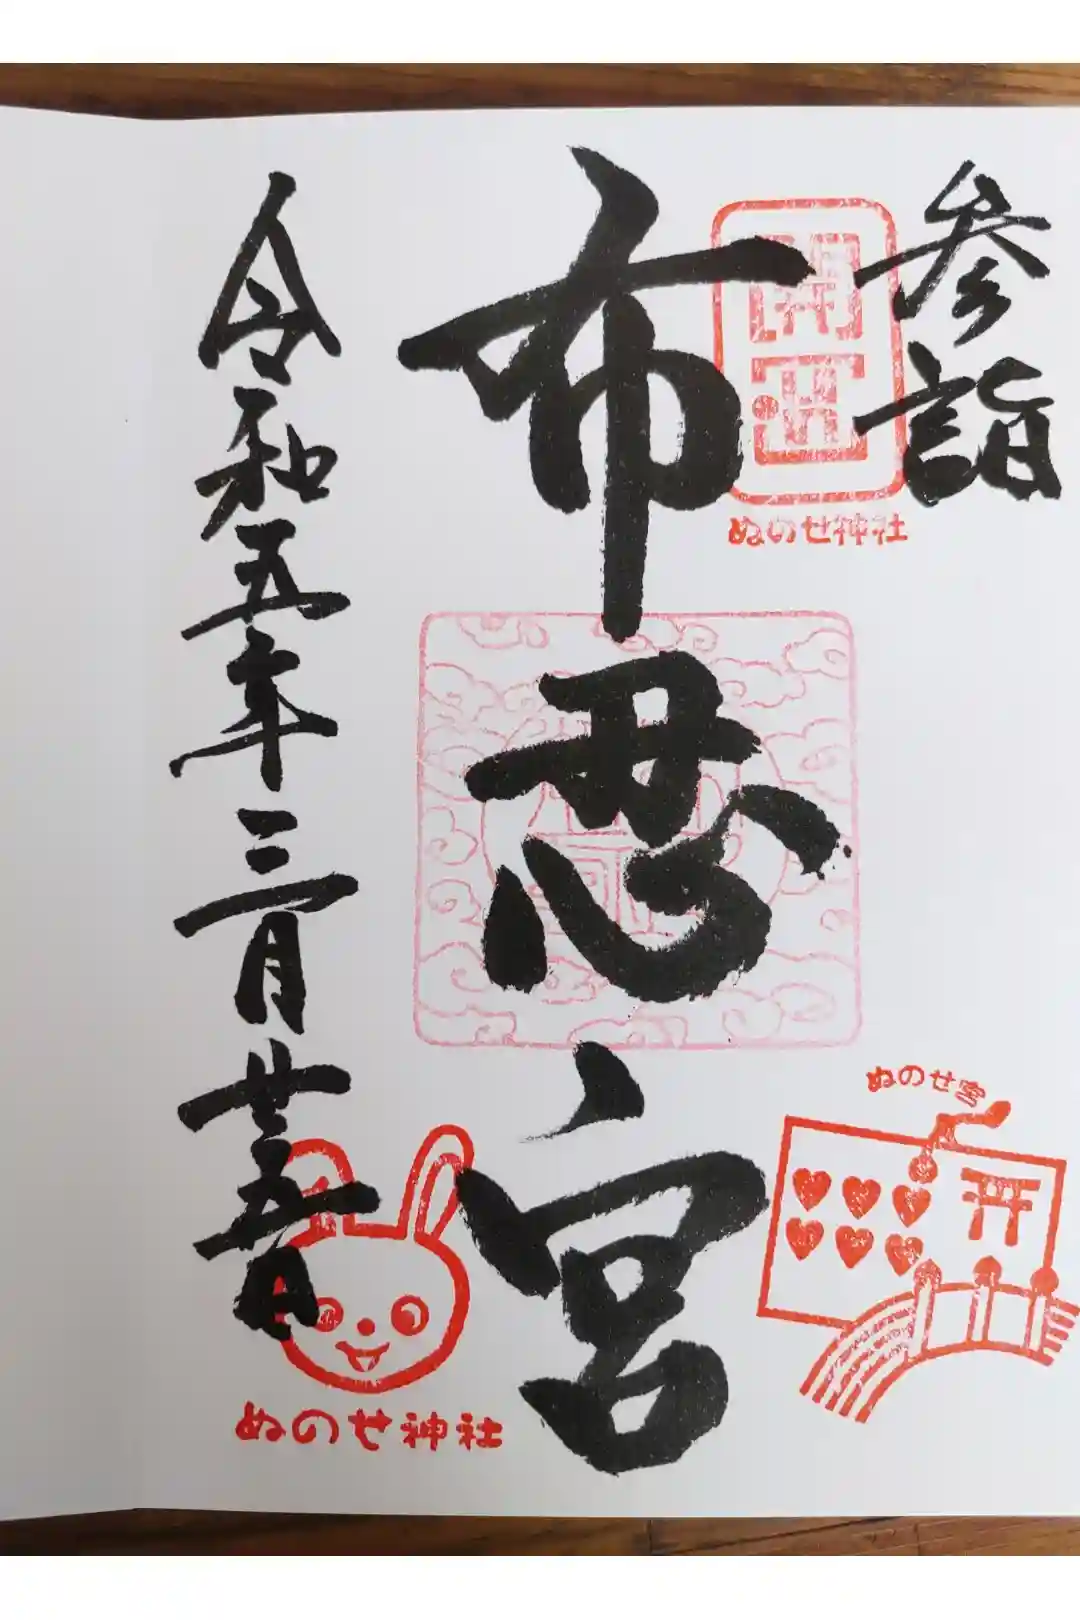 参詣
開運
ぬのせ神社
布忍宮
ぬのせ宮
令和五年三月廿五日
ぬのせ神社